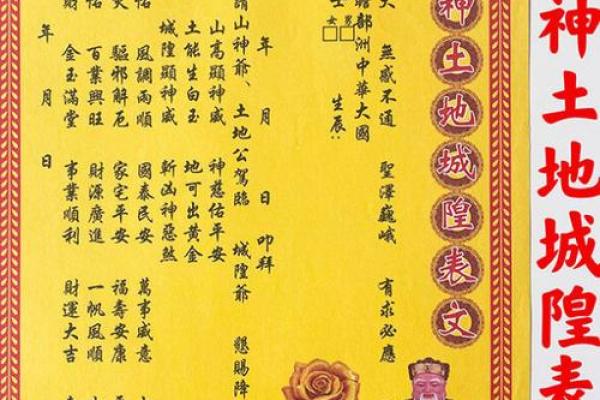 神土地城隍表
神土地城隍表文
無感不通 聖澤巍峨 有求必應
瞻部洲中華大國 生辰：
士 男□ 女□
年 月 日 叩拜
請山神爺、土地公駕臨 城隍爺 懇賜降
山高顯神威 神慈佑平安
土能生白玉 地可出黃金
城隍顯神威 斬凶神惡煞
佑 風調雨順 國泰民安 萬事盛意
驅邪解厄 家宅平安 福壽安康
佑 百業興旺 財源廣進 一帆風順
金玉滿堂 事業順利 財運大吉
年 月 日